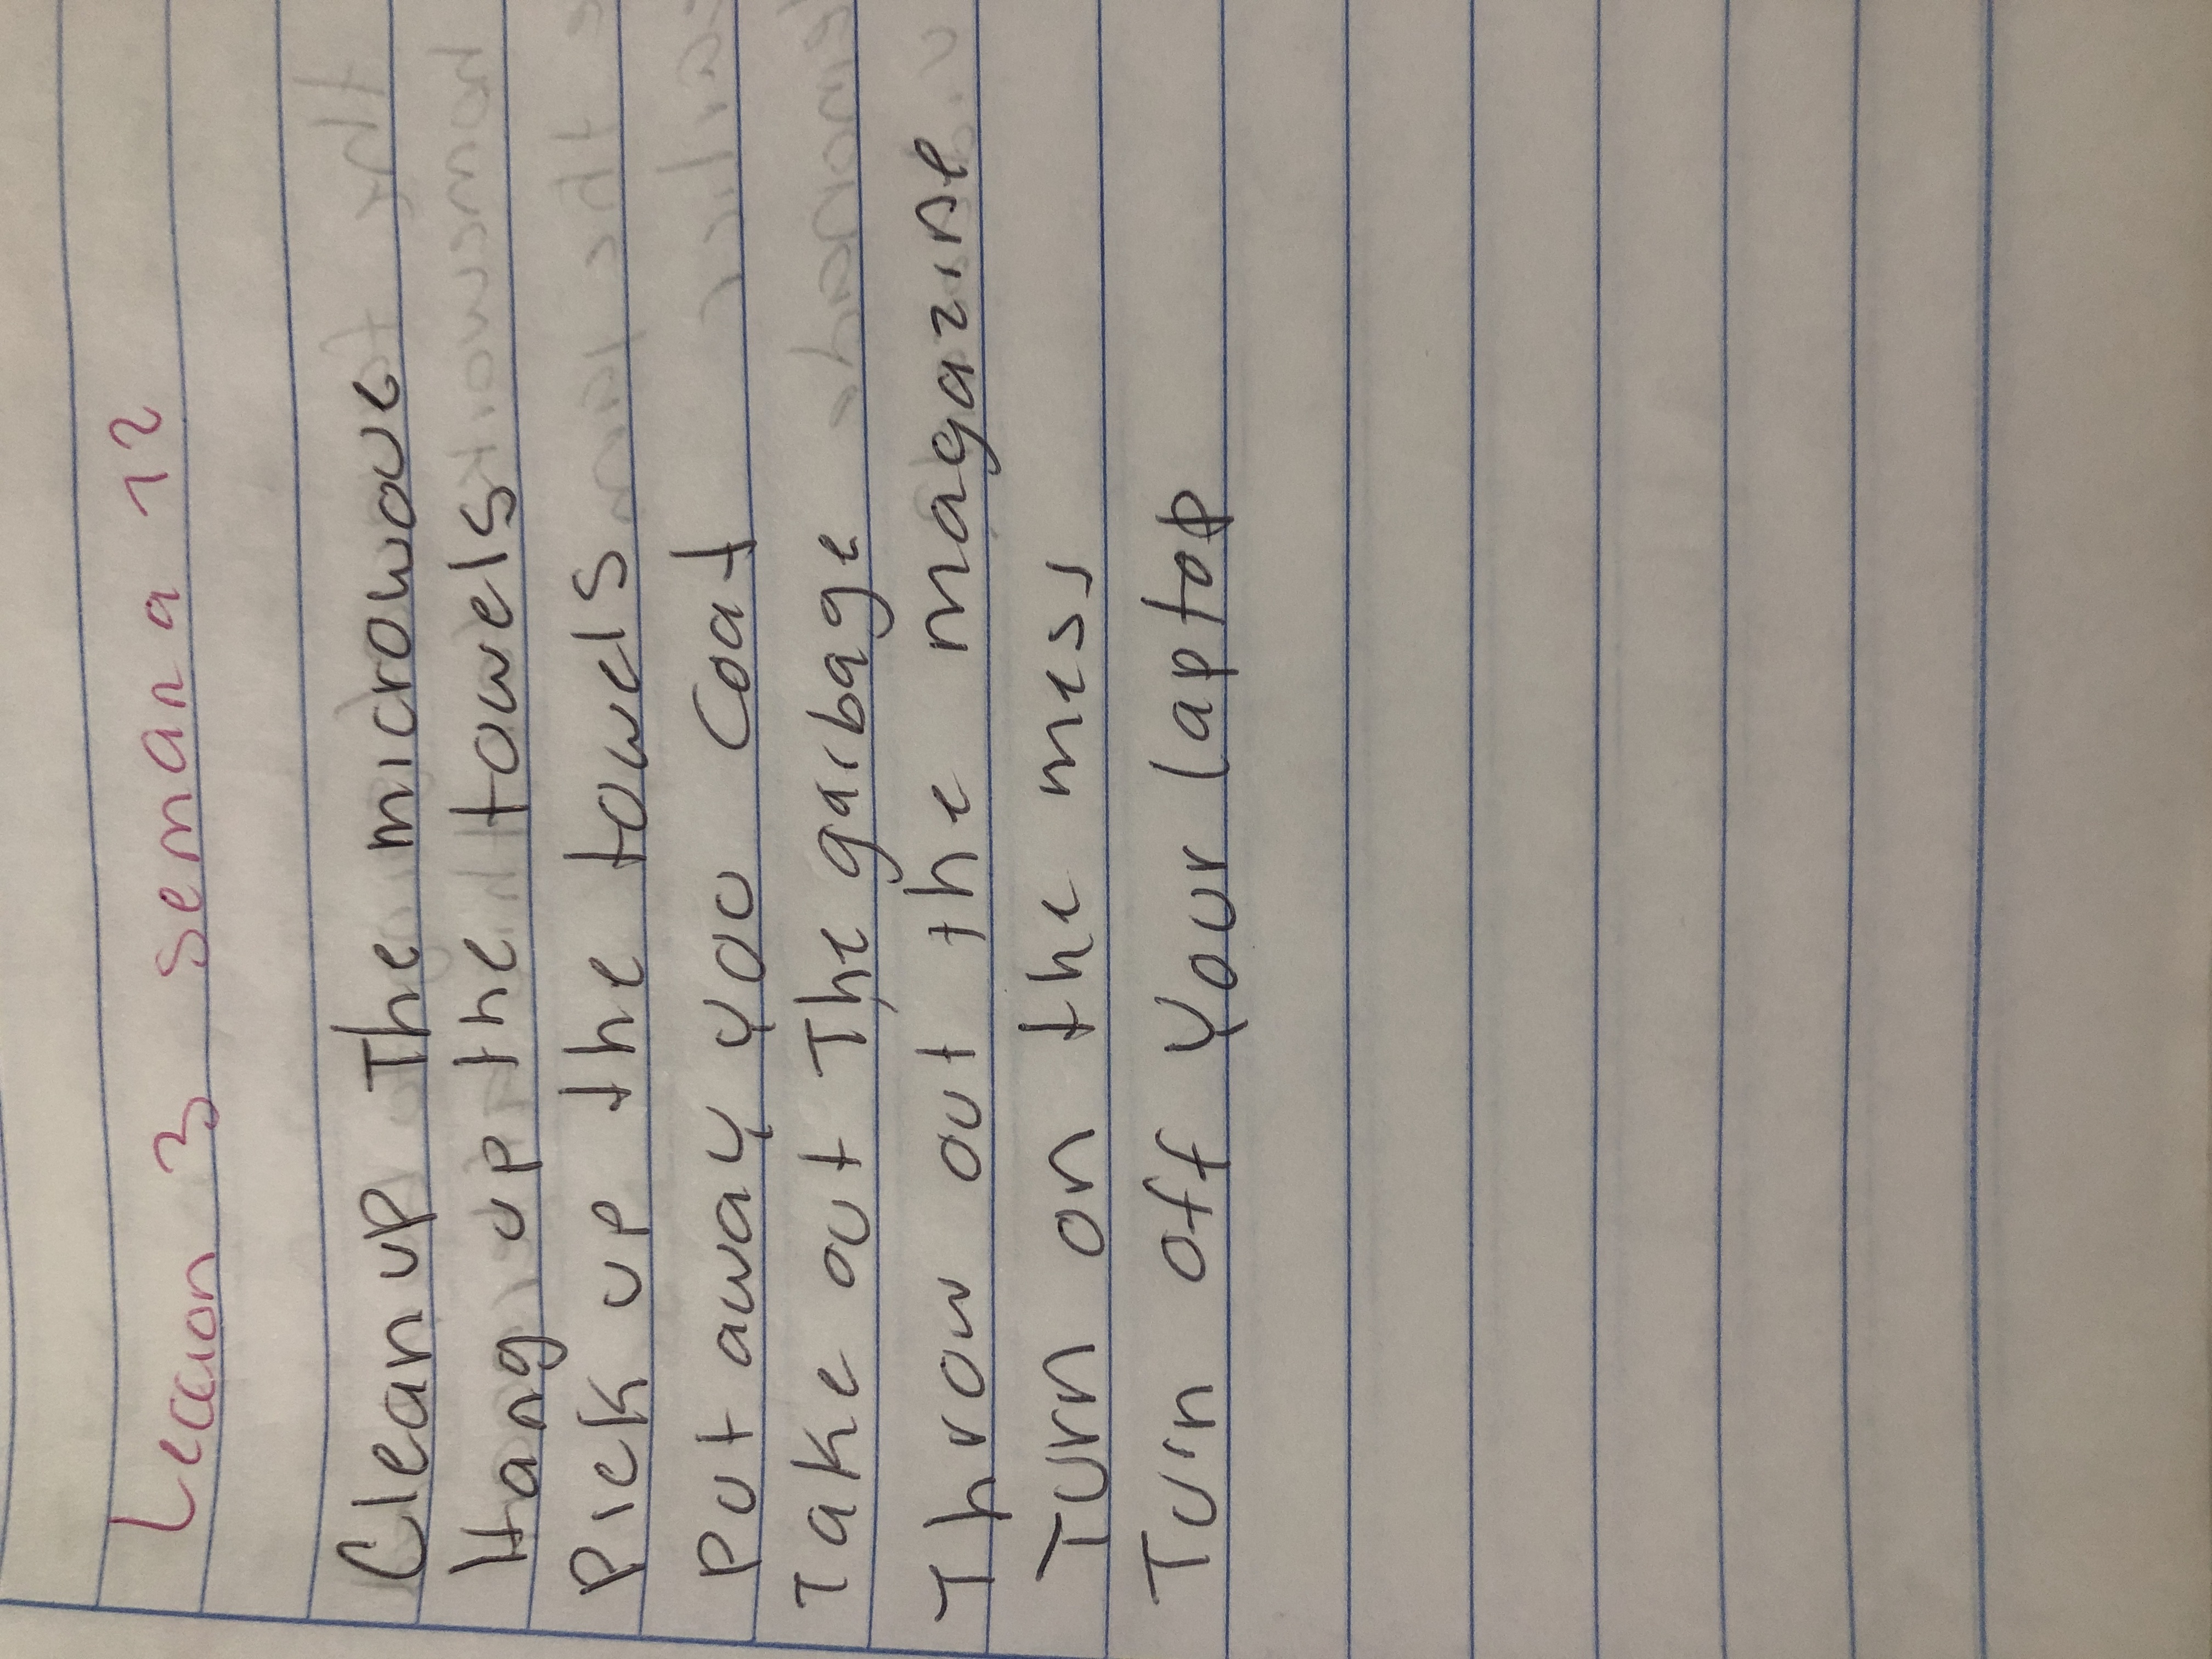 Leccion 3 semana 12
Clean up The microwave
Hang up the towels
Pick up the towels
Put away you Coat
Take out The garbage
Throw out the magazine
Turn on the mess
Turn off your laptop